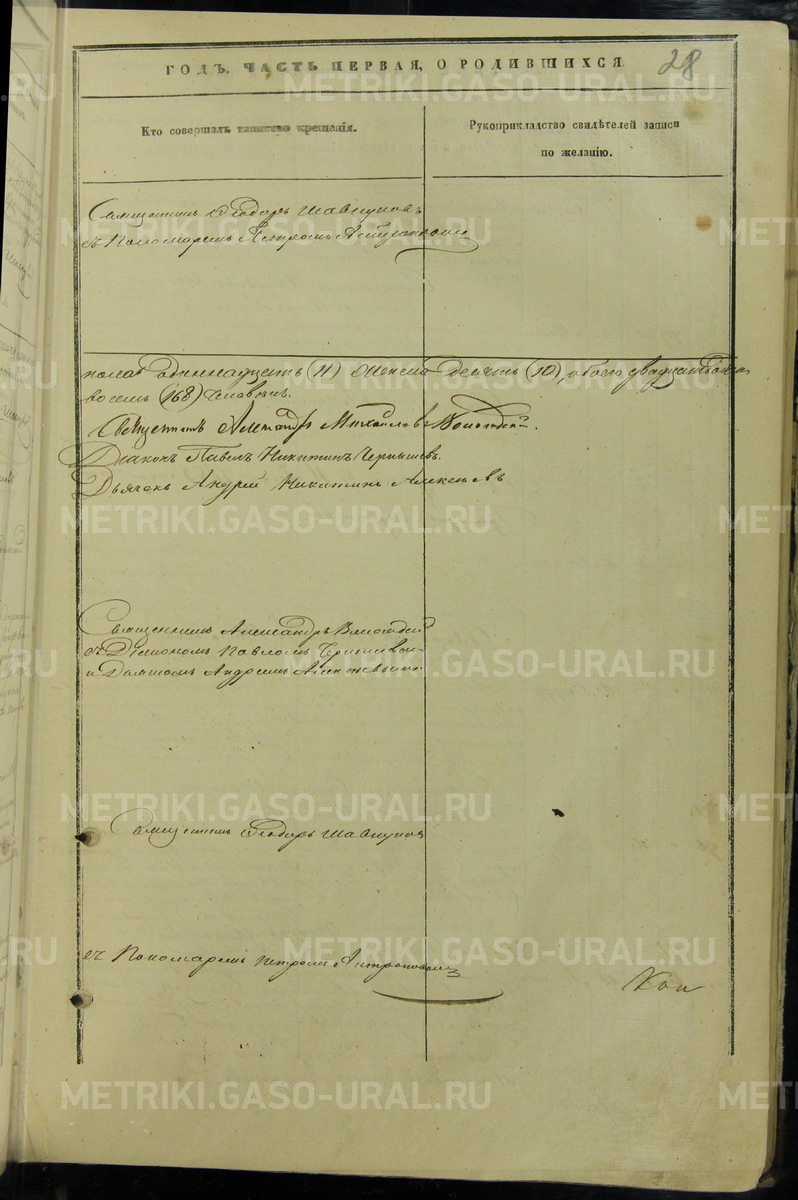 ГОДЪ. ЧАСТЬ ПЕРВАЯ, О РОДИВШИХСЯ.
28
Кто совершалъ таинство крещенія.
Рукоприкладство свидѣтелей записи
по желанію.
Священникъ Ѳеодоръ Шавкуновъ
съ Пономаремъ Петромъ
одиннадцать (11) женска десять (10), обоего
восемь (168) человѣкъ.
Священникъ Александръ Михайловъ
Діаконъ Павелъ Никитинъ Чернышевъ.
Дьячекъ Андрей Никитинъ Алексѣевъ
Священникъ Александръ
съ Діакономъ Павломъ Чернышевымъ
и Дьячкомъ Андреемъ Алексѣевымъ
Священникъ Ѳеодоръ Шавкуновъ
съ Пономаремъ Петромъ Антроповымъ
Коп
METRIKI.GASO-URAL.RU